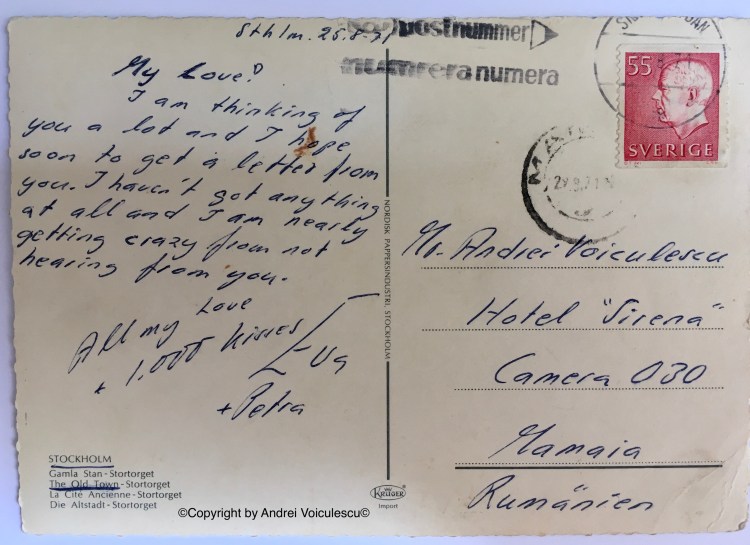 Sthlm. 25.8-71
My Love!
I am thinking of
you a lot and I hope
soon to get a letter from
you. I haven't got anything
at all and I am nearly
getting crazy from not
hearing from you.
All my Love
+ 1.000 kisses
+ Petra
STOCKHOLM
Gamla Stan - Stortorget
The Old Town - Stortorget
La Cité Ancienne - Stortorget
Die Altstadt - Stortorget
©Copyright by Andrei Voiculescu©
NORDISK PAPPERSINDUSTRI, STOCKHOLM
KRÜGER
Import
postnummer
numrera numera
55
SVERIGE
Mr. Andrei Voiculescu
Hotel "Sirena"
Camera 030
Mamaia
Rumänien